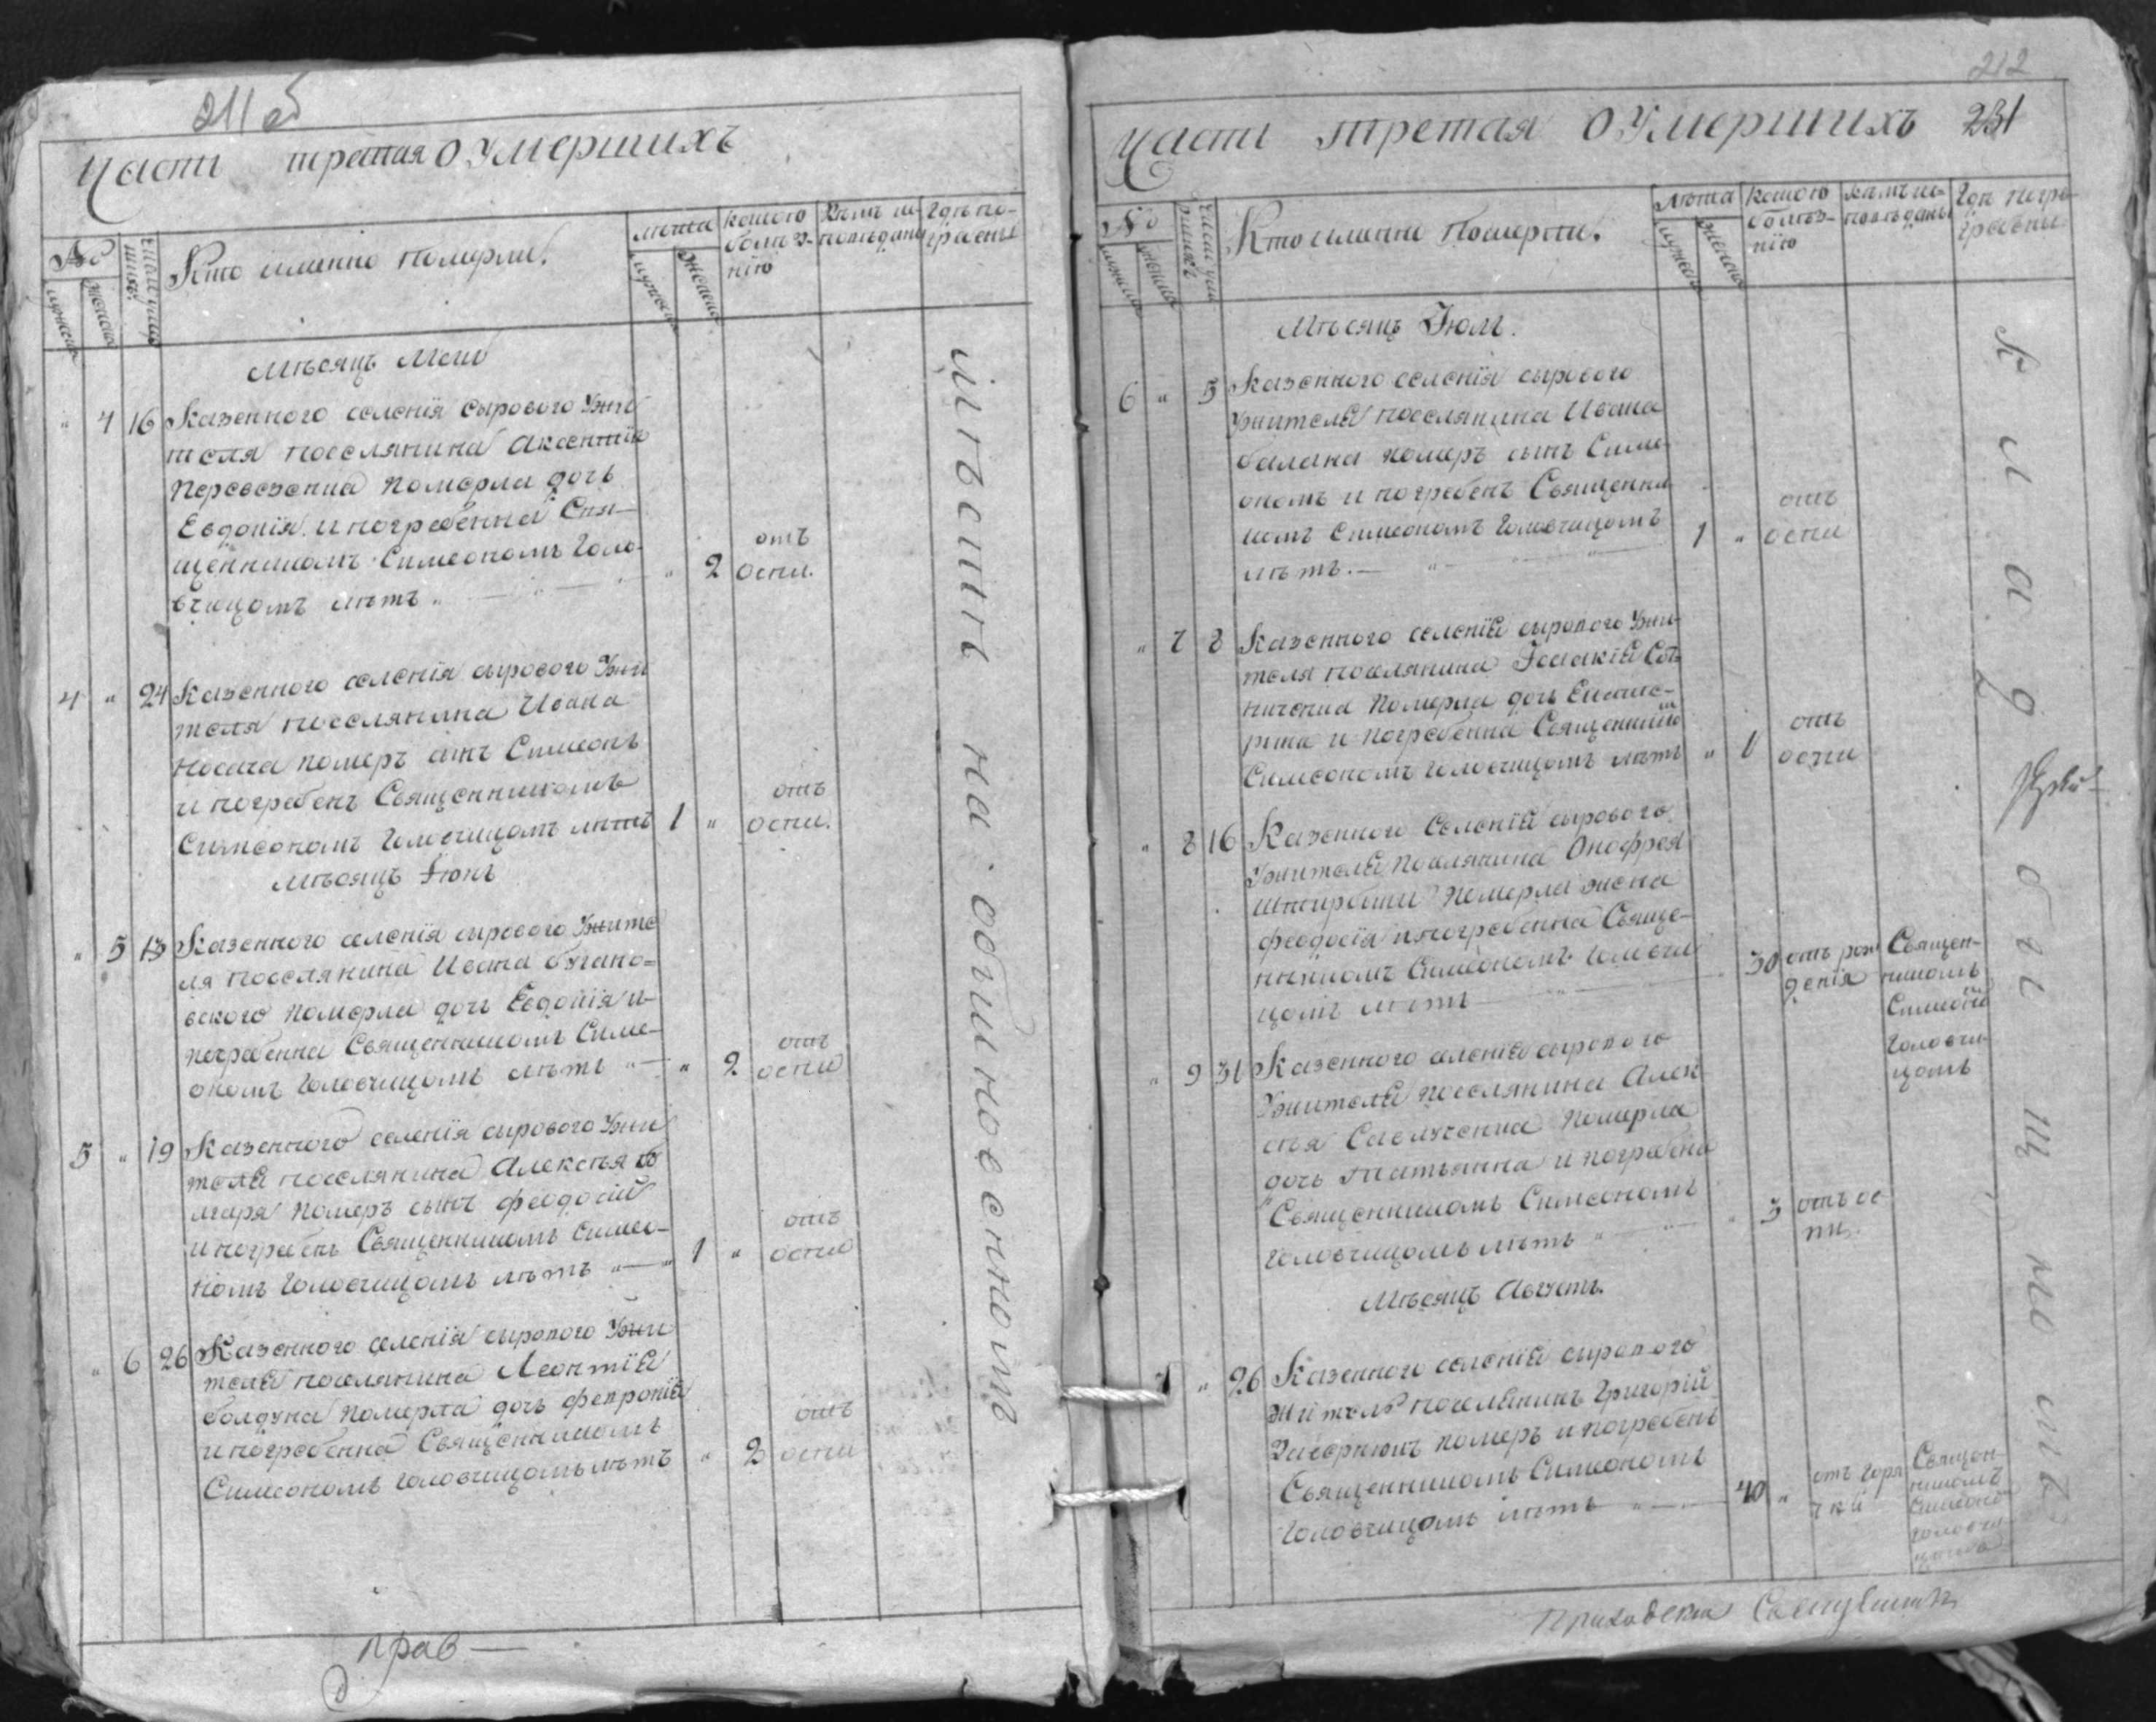 211 об
Часть третая о умершихъ
№
мужеска
женска
Кто именно померли.
лѣта
мужеска
женска
какою
болѣз-
нію
Кѣмъ ис-
повѣданы
Гдѣ по-
гребены
Мѣсяцъ Маій
" 4 16 Казенного селенія сырового Ужи
теля поселянина Аксентія
померла дочь
Евдокія и погребенна Свя-
щенникомъ Симеономъ Голо-
вчицомъ лѣтъ. " 2 отъ
оспи.
4 " 24 Казенного селенія сырового Ужи
теля поселянина Ивана
Носача померъ сынъ Симеонъ
и погребенъ Священникомъ
Симеономъ Головчицомъ лѣтъ 1 " отъ
оспи.
Мѣсяцъ Іюнь
" 5 13 Казенного селенія сырового Ужите
ля поселянина Ивана
вского померла дочь Евдокія и
погребенна Священникомъ Симе-
ономъ Головчицомъ лѣтъ " 2 отъ
оспи
5 " 19 Казенного селенія сырового Ужи
теля поселянина Алексѣя
померъ сынъ Феодосій
и погребенъ Священникомъ Симео-
номъ Головчицомъ лѣтъ 1 " отъ
оспи
" 6 26 Казенного селенія сырового Ужи
теля поселянина Леонтія
болдуна померла дочь Февронія
и погребенна Священникомъ
Симеономъ Головчицомъ лѣтъ " 2 отъ
оспи
на обикновенномъ
прав
212
Часть третая о умершихъ 231
№
Кто именно померли.
лѣта
мужеска
женска
какою
болѣз-
нію
кѣмъ ис-
повѣданы
Гдѣ погре-
бены
Мѣсяцъ Іюль.
6 " 5 Казенного селенія сырового
Ужителя поселянина Ивана
балана померъ сынъ Симе-
ономъ и погребенъ Священни-
комъ Симеономъ Головчицомъ
лѣтъ. 1 " отъ
оспи
" 7 8 Казенного селенія сырового Ужи-
теля поселянина Ісаакія
померла дочь Екате-
рина и погребенна Священникомъ
Симеономъ Головчицомъ лѣтъ " 1 отъ
оспи
" 8 16 Казенного Селенія сырового
Ужителя поселянина Онофрея
померла жена
феодосія и погребенна Свяще-
нникомъ Симеономъ Головчи
цомъ лѣтъ 30 отъ рож
денія
Священ-
никомъ
Симеоно
Головчи-
цомъ
" 9 31 Казенного селенія сырового
Ужителя поселянина Алек-
сѣя померла
дочь Татьянна и погребена
Священникомъ Симеономъ
Головчицомъ лѣтъ " 3 отъ ос
пи.
Мѣсяцъ Августъ.
7 " 26 Казенного селенія сырового
жителъ поселянинъ Григорій
померъ и погребенъ
Священникомъ Симеономъ
Головчицомъ лѣтъ 40 " отъ Горя
чки
Священ-
никомъ
Симеоно
Головчи-
цомъ
кладбищномъ